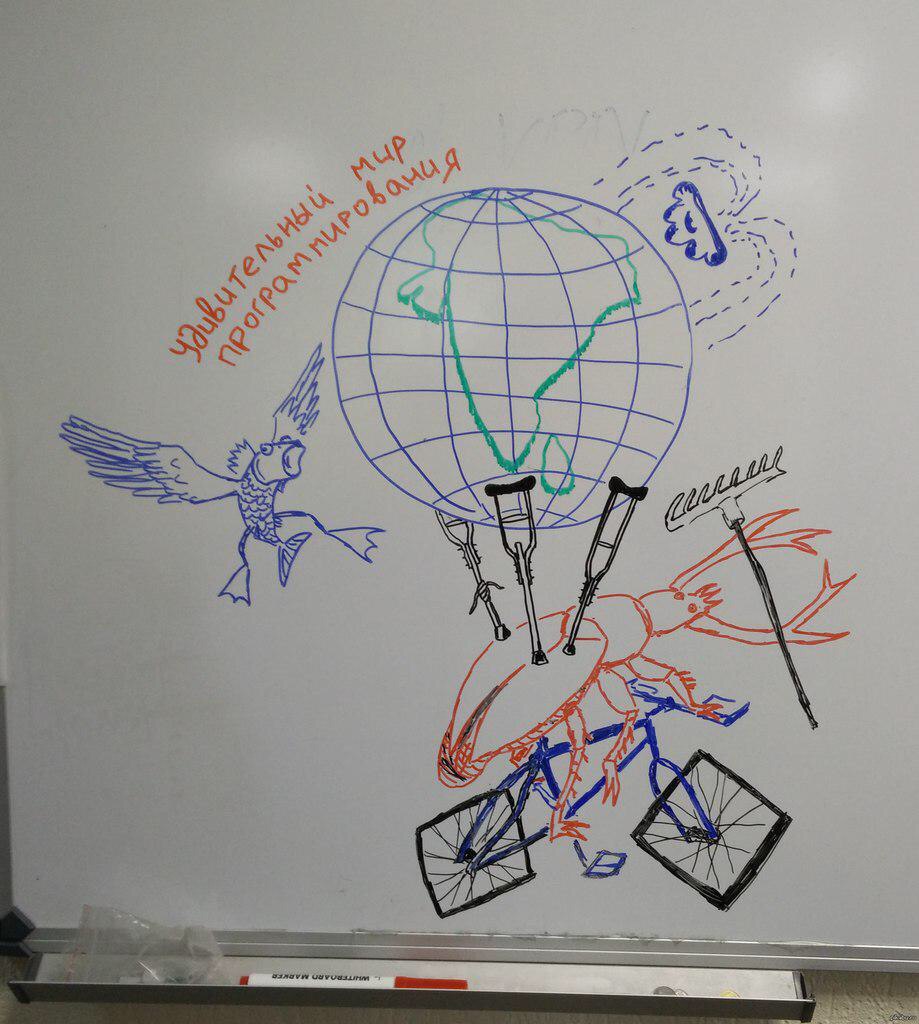 удивительный мир
программирования
WHITEBOARD MARKER